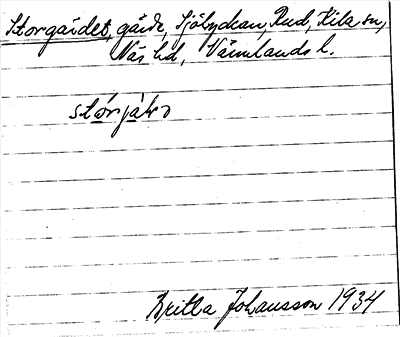 Storgärdet, gärde, Sjöbyckan, Rud, Kila sn,
Näs hd, Värmlands l.
Britta Johansson 1934